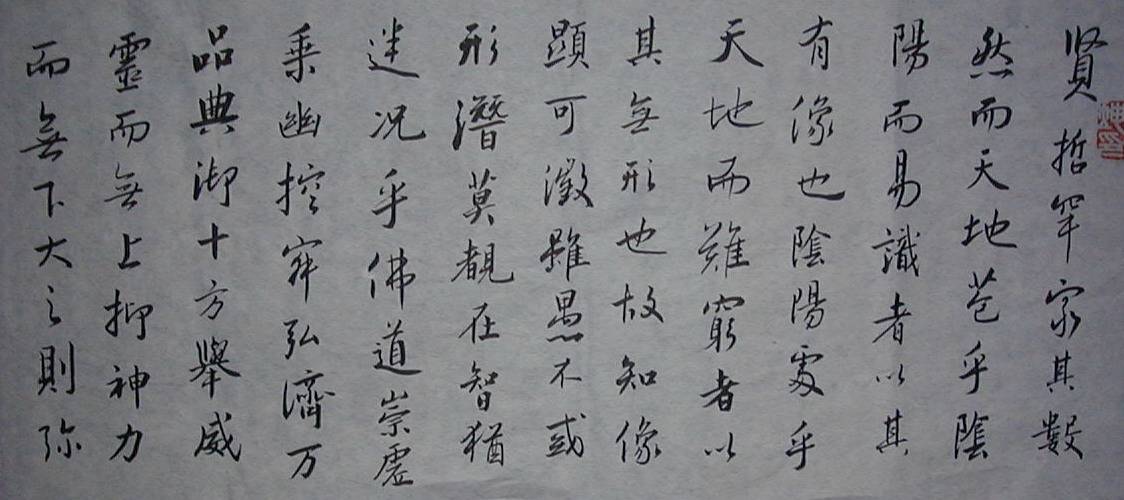 贤哲罕家其數
然而天地苞乎陰
陽而易識者以其
有像也陰陽處乎
天地而難窮者以
其無形也故知像
顯可徵雖愚不或
形潛莫覩在智猶
迷况乎佛道崇虛
乗幽控寂弘濟万
品典御十方舉威
靈而無上抑神力
而無下大之則弥